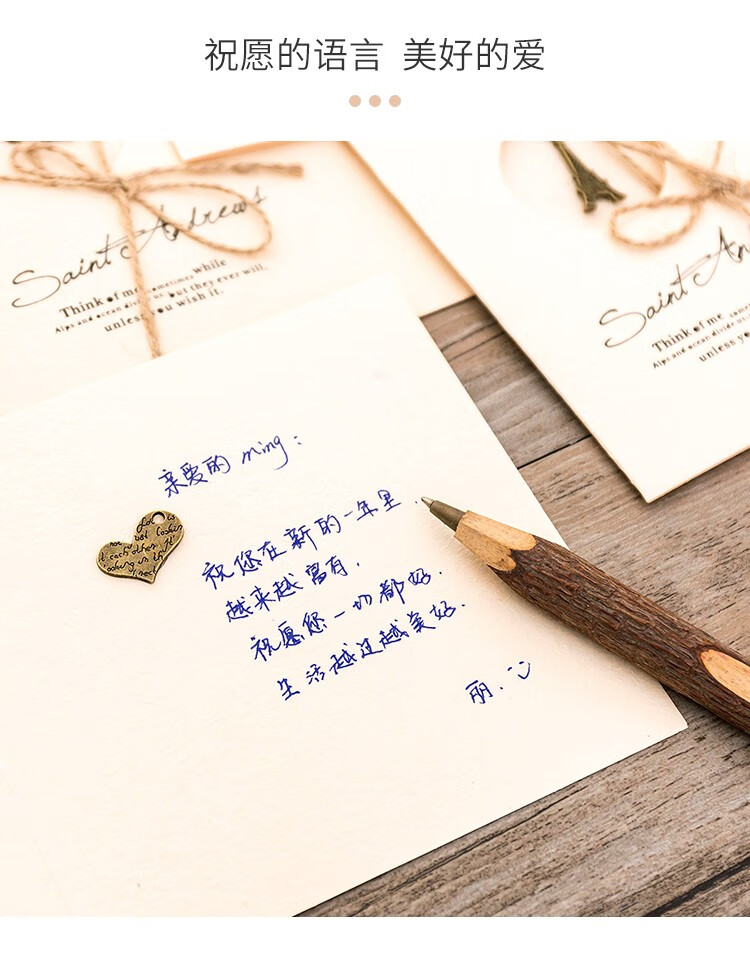 祝愿的语言 美好的爱
Saint Andrews
Think of me sometimes while
Alps and ocean divide us, but they ever will,
unless you wish it.
Saint An
Think of me some
Alps and ocean divide us,
unless yo
亲爱的 ming:
祝您在新的一年里.
越来越富有.
祝愿您一切都好.
生活越过越美好.
丽.